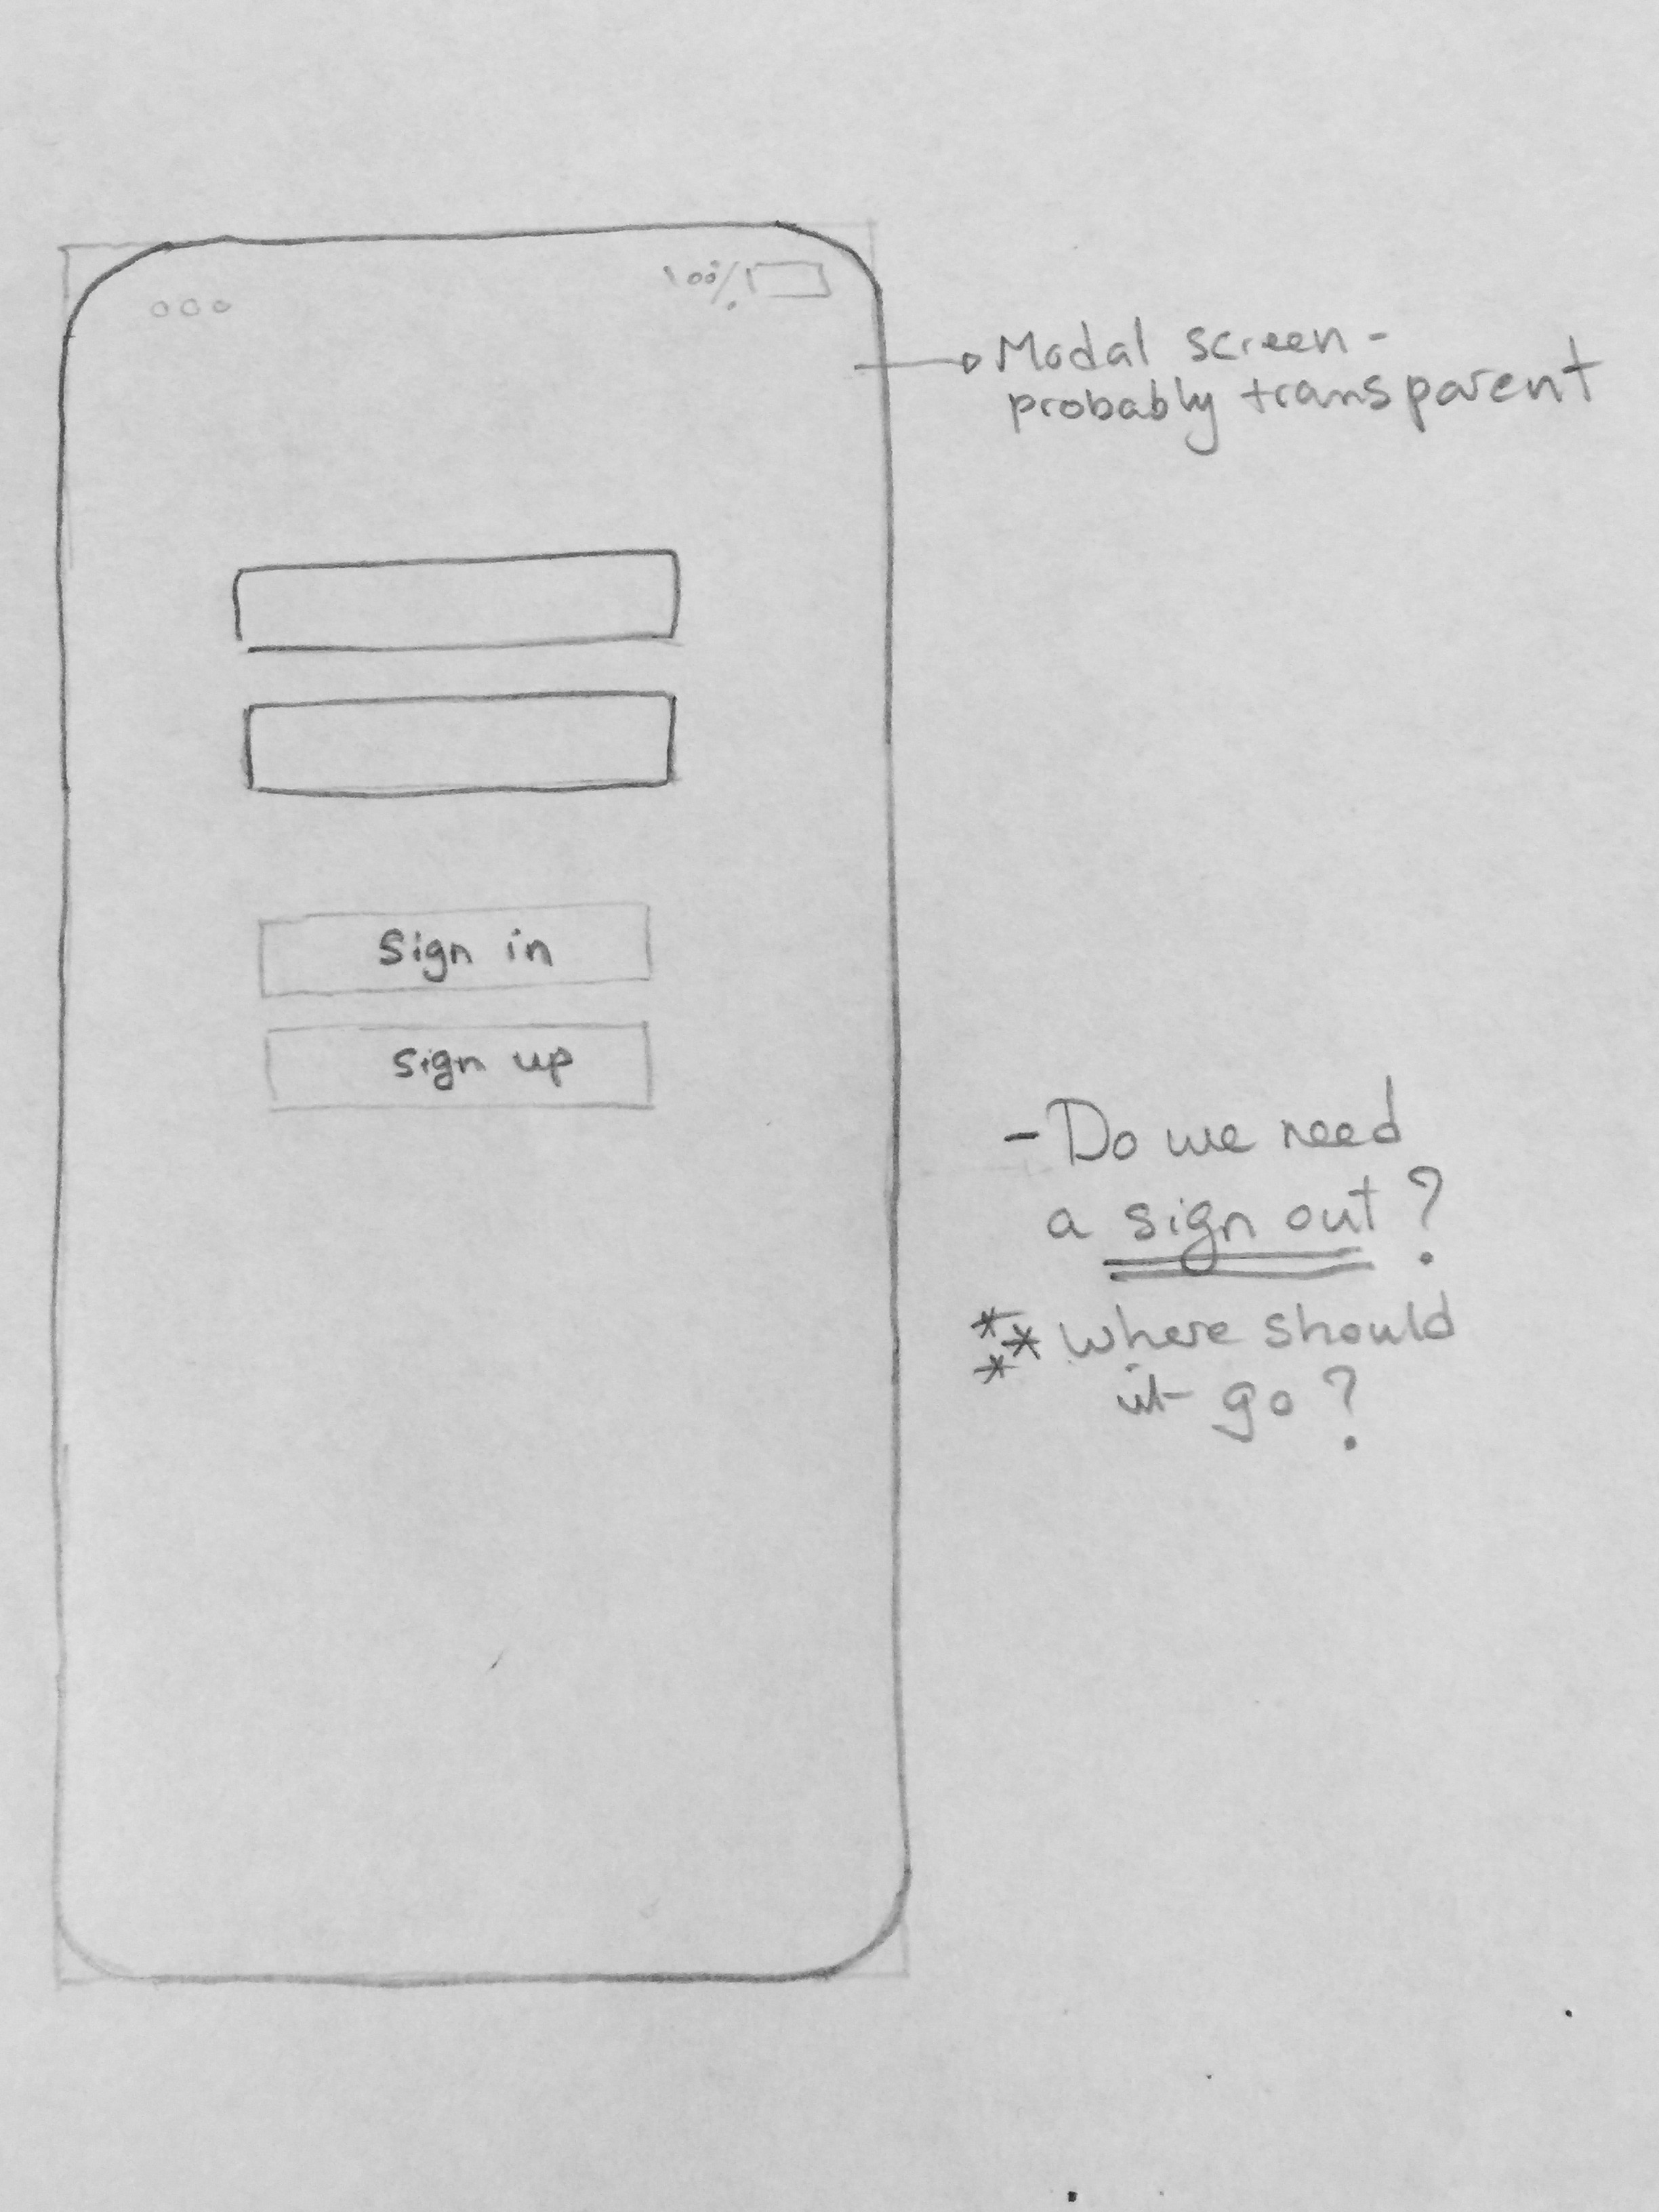 100%
Modal screen -
probably transparent
Sign in
Sign up
- Do we need
a sign out?
*** where should
it go?